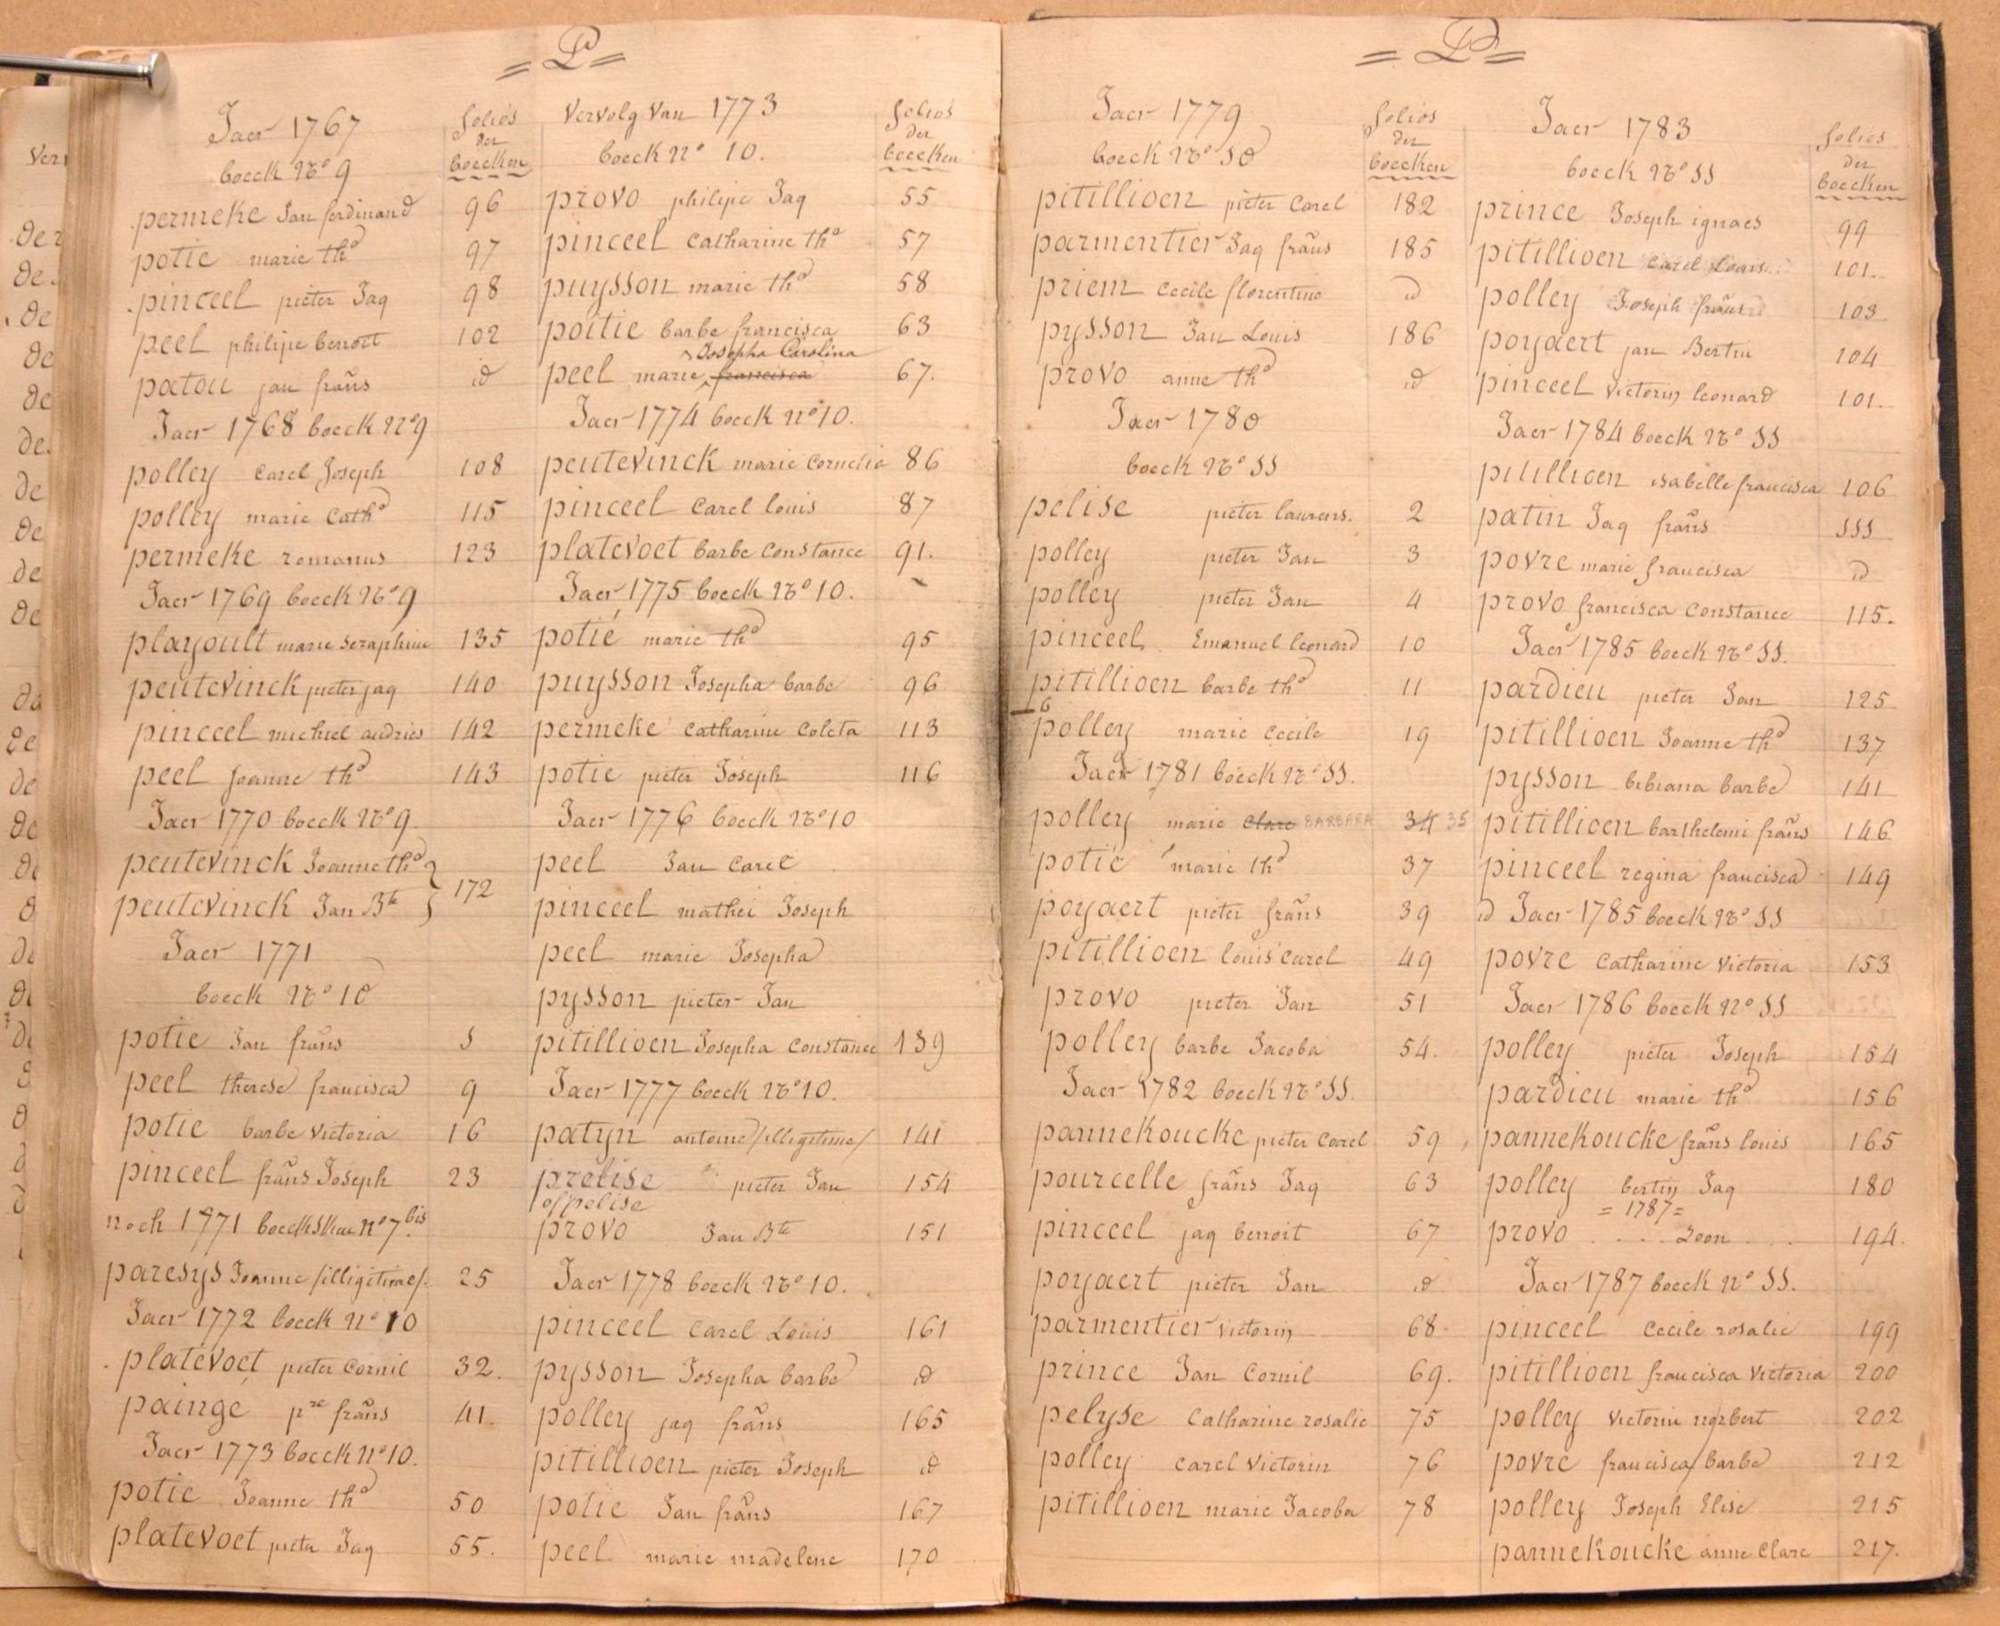 = P =
Jaer 1767
boeck No 9
folios
der
boecken
permeke Jan ferdinand 96
potie marie thd 97
pinceel pieter Jaq 98
peel philipe benoit 102
patou jan frãns id
Jaer 1768 boeck No 9
polley Carel Joseph 108
polley marie Cathd 115
permeke romanus 123
Jaer 1769 boeck No 9
playoult marie seraphine 135
peutevinck pieter jaq 140
pinceel michiel andries 142
peel Joanne thd 143
Jaer 1770 boeck No 9.
peutevinck Joanne thd
peutevinck Jan Bte } 172
Jaer 1771
boeck No 10
potie Jan frãns 1
peel therese francisca 9
potie barbe victoria 16
pinceel frãns Joseph 23
noch 1771 boeck No 7 bis
paresys Joanne /illigitime/. 25
Jaer 1772 boeck No 10
platevoet pieter Cornil 32.
paingé pre frãns 41.
Jaer 1773 boeck No 10.
potie Joanne thd 50
platevoet pieter Jaq 55.
vervolg van 1773
boeck No 10.
folios
der
boecken
provo philipe Jaq 55
pinceel Catharine thd 57
puysson marie thd 58
poitie barbe francisca 63
Josepha Carolina
peel marie francisca 67.
Jaer 1774 boeck No 10.
peutevinck marie Cornelia 86
pinceel Carel louis 87
platevoet barbe Constance 91.
Jaer 1775 boeck No 10.
potie marie thd 95
puysson Josepha barbe 96
permeke Catharine Coleta 113
potie pieter Joseph 116
Jaer 1776 boeck No 10
peel Jan Carel
pinceel mathei Joseph
peel marie Josepha
pysson pieter Jan
pitillioen Josepha Constance 139
Jaer 1777 boeck No 10.
patyn antoine /illigitime/ 141
prelise pieter Jan 154
of/pelise
provo Jan Bte 151
Jaer 1778 boeck No 10.
pinceel Carel Louis 161
pysson Josepha barbe id
polley jaq frãns 165
pitillioen pieter Joseph id
potie Jan frãns 167
peel marie madelene 170
= P =
Jaer 1779
boeck No 10
folios
der
boecken
pitillioen pieter Carel 182
parmentier Jaq frãns 185
priem Cecile florentine id
pysson Jan Louis 186
provo anne thd id
Jaer 1780
boeck No 11
pelise pieter laurens. 2
polley pieter Jan 3
polley pieter Jan 4
pinceel Emanuel leonard 10
pitillioen barbe thd 11
6
polley marie Cecile 19
Jaer 1781 boeck No 11.
polley marie Clare BARBARA 34 35
potie marie thd 37
poyaert pieter frãns 39
pitillioen louis Carel 49
provo pieter Jan 51
polley barbe Jacoba 54.
Jaer 1782 boeck No 11.
pannekoucke pieter Carel 59
pourcelle frãns Jaq 63
pinceel jaq benoit 67
poyaert pieter Jan id
parmentier victorin 68
prince Jan Cornil 69.
pelyse Catharine rosalie 75
polley Carel Victorin 76
pitillioen marie Jacoba 78
Jaer 1783
boeck No 11
folios
der
boecken
prince Joseph ignaes 99
pitillioen Carel Louis 101.
polley Joseph frãns 103
poyaert jan Bertin 104
pinceel victorin leonard 101.
Jaer 1784 boeck No 11
pitillioen isabelle francisca 106
patin Jaq frãns 111
povre marie francisca id
provo francisca Constance 115.
Jaer 1785 boeck No 11.
pardieu pieter Jan 125
pitillioen Joanne thd 137
pysson bibiana barbe 141
pitillioen barthelemi frãns 146
pinceel regina francisca 149
id Jaer 1785 boeck No 11
povre Catharine Victoria 153
Jaer 1786 boeck No 11
polley pieter Joseph 154
pardieu marie thd 156
pannekoucke frãns louis 165
polley bertin Jaq 180
= 1787 =
provo .... Leon ... 194.
Jaer 1787 boeck No 11.
pinceel Cecile rosalie 199
pitillioen francisca Victoria 200
polley Victorin norbert 202
povre francisca/barbe 212
polley Joseph Elise 215
pannekoucke anne Clare 217.